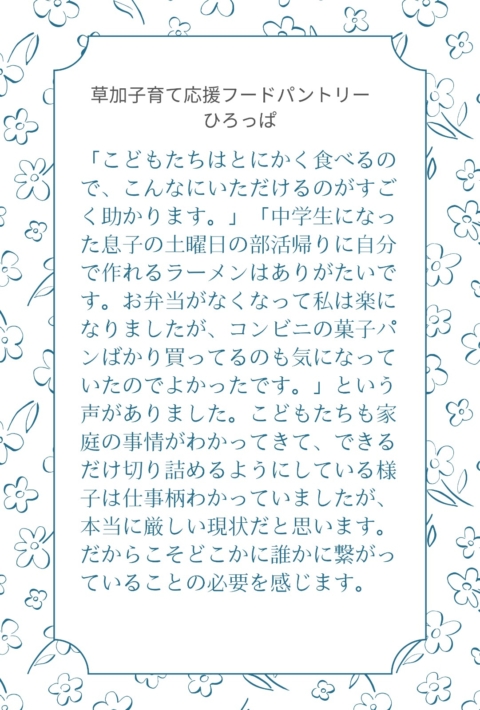 草加子育て応援フードパントリー
ひろっぱ
「こどもたちはとにかく食べるの
で、こんなにいただけるのがすご
く助かります。」「中学生になっ
た息子の土曜日の部活帰りに自分
で作れるラーメンはありがたいで
す。お弁当がなくなって私は楽に
なりましたが、コンビニの菓子パ
ンばかり買ってるのも気になって
いたのでよかったです。」という
声がありました。こどもたちも家
庭の事情がわかってきて、できる
だけ切り詰めるようにしている様
子は仕事柄わかっていましたが、
本当に厳しい現状だと思います。
だからこそどこかに誰かに繋がっ
ていることの必要を感じます。